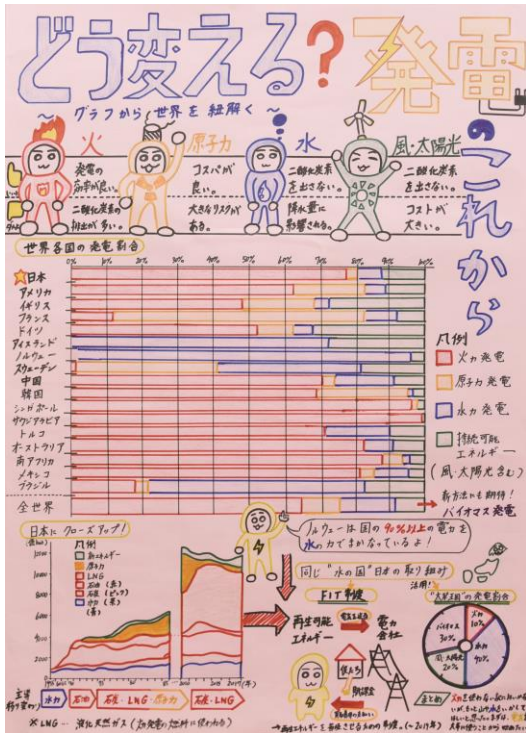 どう変える?発電
のこれから
~グラフから世界を紐解く~
火
発電の
効率が良い。
二酸化炭素の
排出が多い。
原子力
コスパが
良い。
大きなリスクが
ある。
水
二酸化炭素
を出さない。
降水量に
影響される。
風・太陽光
二酸化炭素
を出さない。
コストが
大きい。
世界各国の発電割合
0% 10% 20% 30% 40% 50% 60% 70% 80% 90% 100%
日本
アメリカ
イギリス
フランス
ドイツ
アイスランド
ノルウェー
スウェーデン
中国
韓国
シンガポール
サウジアラビア
トルコ
オーストラリア
南アフリカ
メキシコ
ブラジル
全世界
凡例
火力発電
原子力発電
水力発電
持続可能
エネルギー
(風・太陽光含む)
新方法にも期待!
バイオマス発電
日本にクローズアップ!
凡例
新エネルギー
原子力
LNG
石油(赤)
石炭(ピンク)
水力(青)
ノルウェーは国の90%以上の電力を
水の力でまかなっているよ!
同じ"水の国"日本の取り組み
活用!
FIT制度
再生可能
エネルギー
電力
会社
再生エネルギーを普及させるための制度。(~2019年)
10%
水力
40%
風・太陽光
20%
バイオマス
30%
まとめ
主導
水力
石油
石炭・LNG・原子力
石炭・LNG
※LNG… 液化天然ガス(火力発電の燃料に使われる)